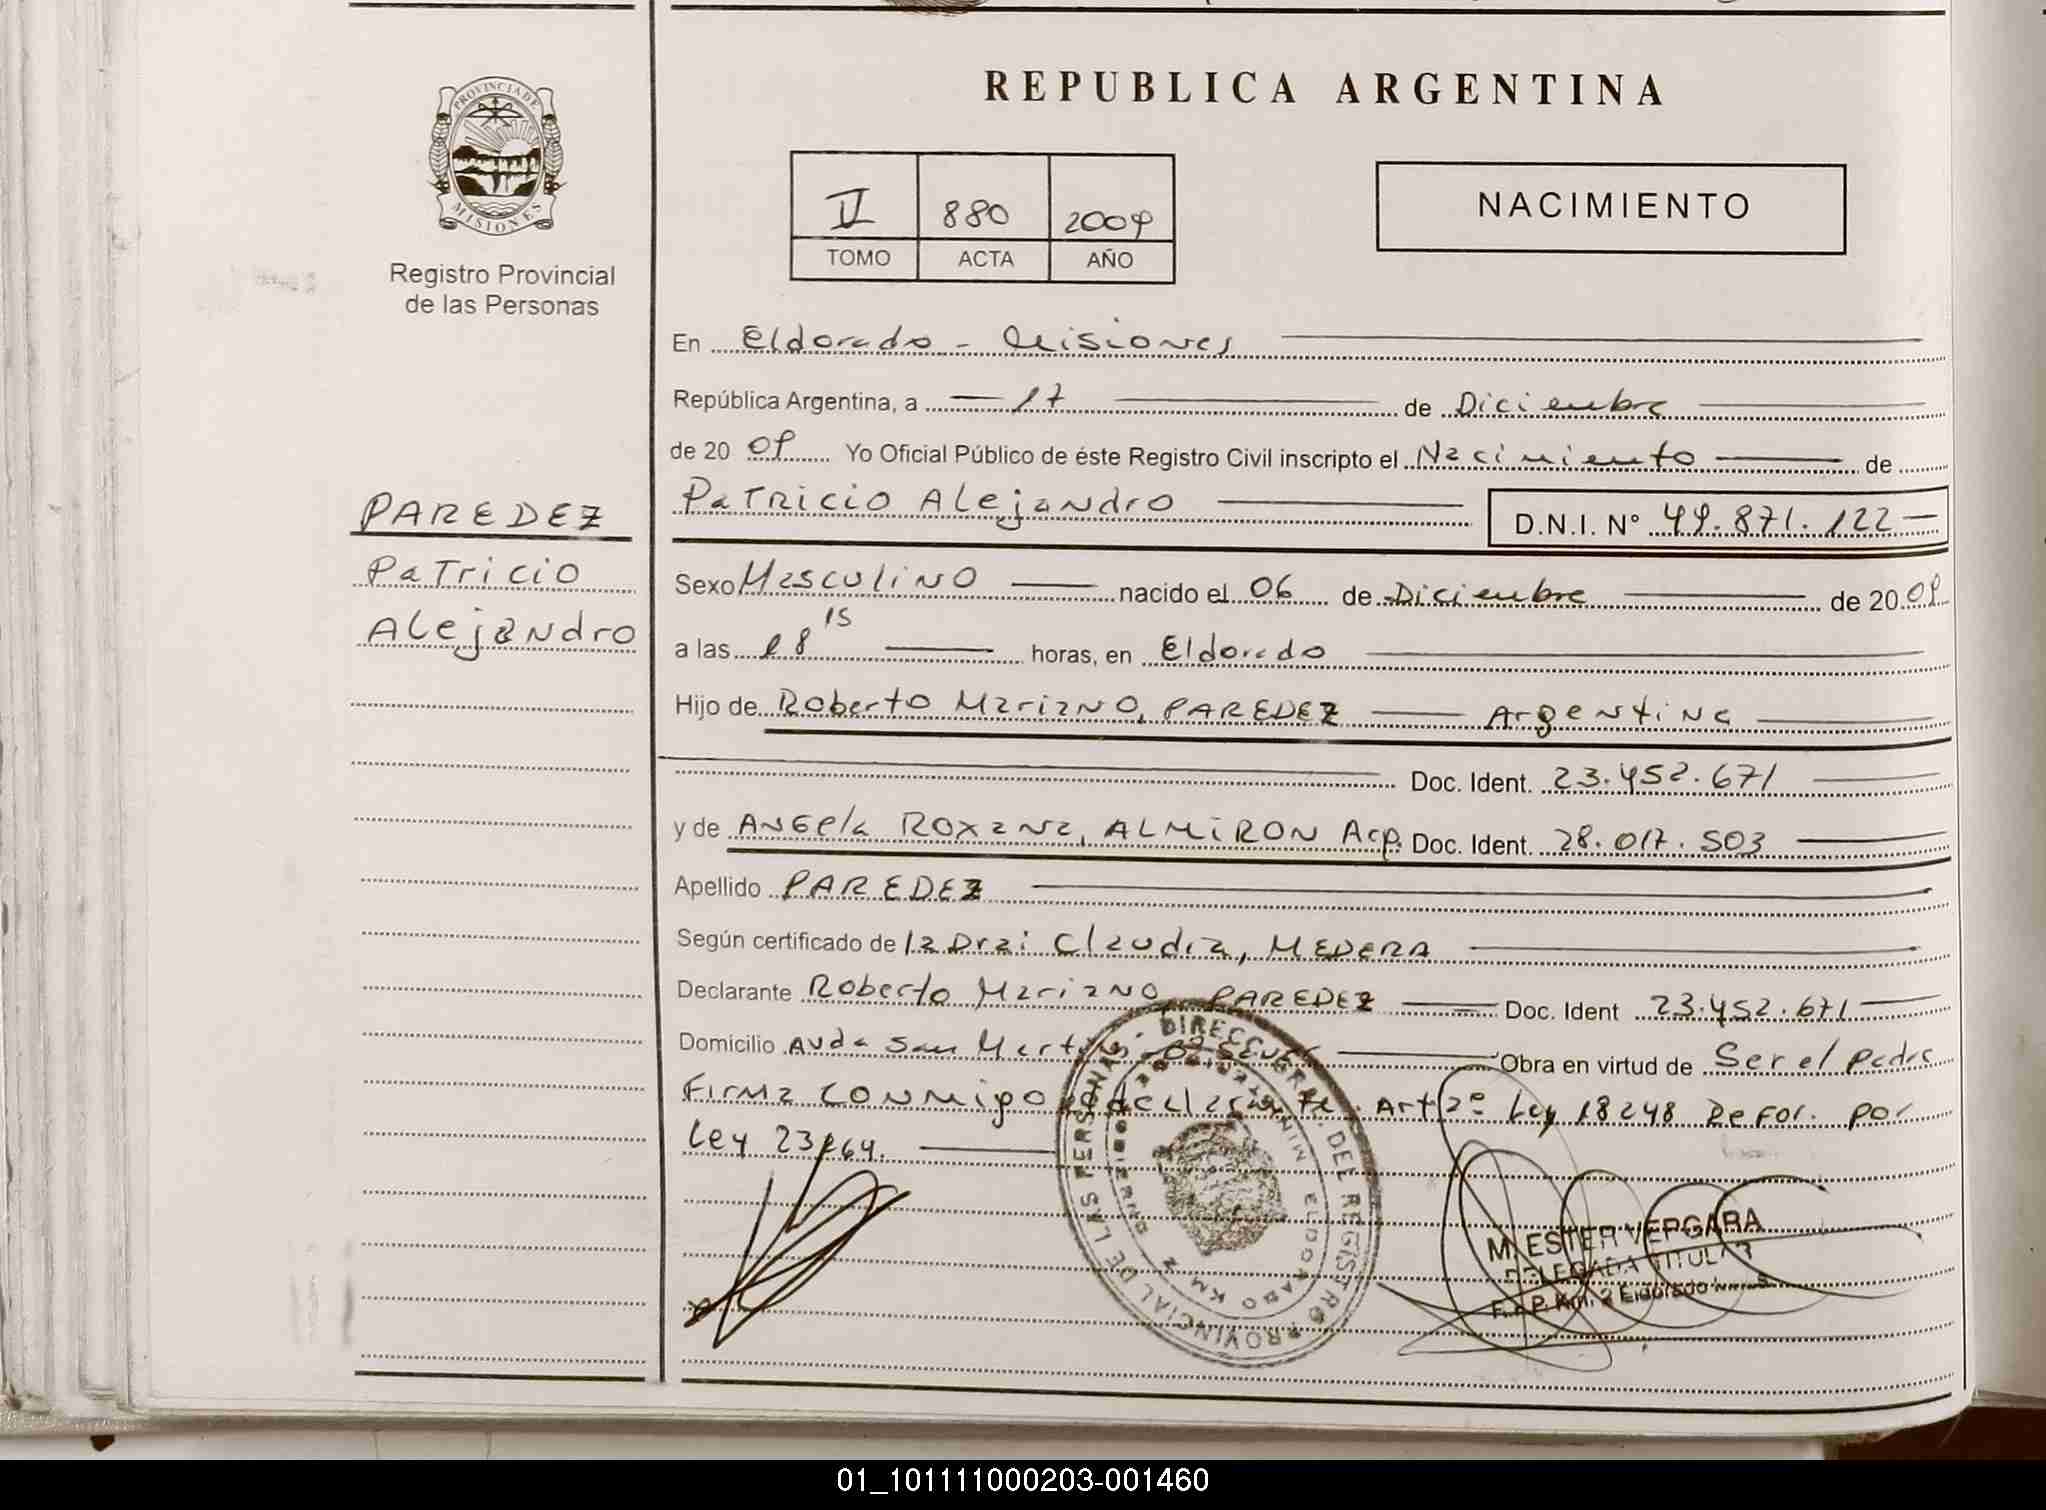 PROVINCIA DE
MISIONES
Registro Provincial
de las Personas
PAREDEZ
Patricio
Alejandro
REPUBLICA ARGENTINA
880 2009
TOMO ACTA AÑO
NACIMIENTO
En Eldorado - Misiones
República Argentina, a 17 de Diciembre
de 20 09 Yo Oficial Público de éste Registro Civil inscripto el Nacimiento de
Patricio Alejandro D.N.I. N° 49.871.122
Sexo Masculino nacido el 06 de Diciembre de 20 09
a las 18 15 horas, en Eldorado
Hijo de Roberto Mariano, PAREDEZ Argentina
Doc. Ident. 23.452.671
y de Angela Roxana, ALMIRON Arg. Doc. Ident. 28.017.503
Apellido PAREDEZ
Según certificado de la Dra: Claudia, MEDERA
Declarante Roberto Mariano, PAREDEZ Doc. Ident 23.452.671
Domicilio Avda San Martin Obra en virtud de Ser el padre
Firma conmigo declarante. Art 2º Ley 18248 Refor. por
Ley 23264.
DIRECC. GRAL. DEL REGISTRO PROVINCIAL DE LAS PERSONAS
ELDORADO KM 2
M. ESTER VERGARA
DELEGADA TITULAR
Km. 2 Eldorado
01_101111000203-001460